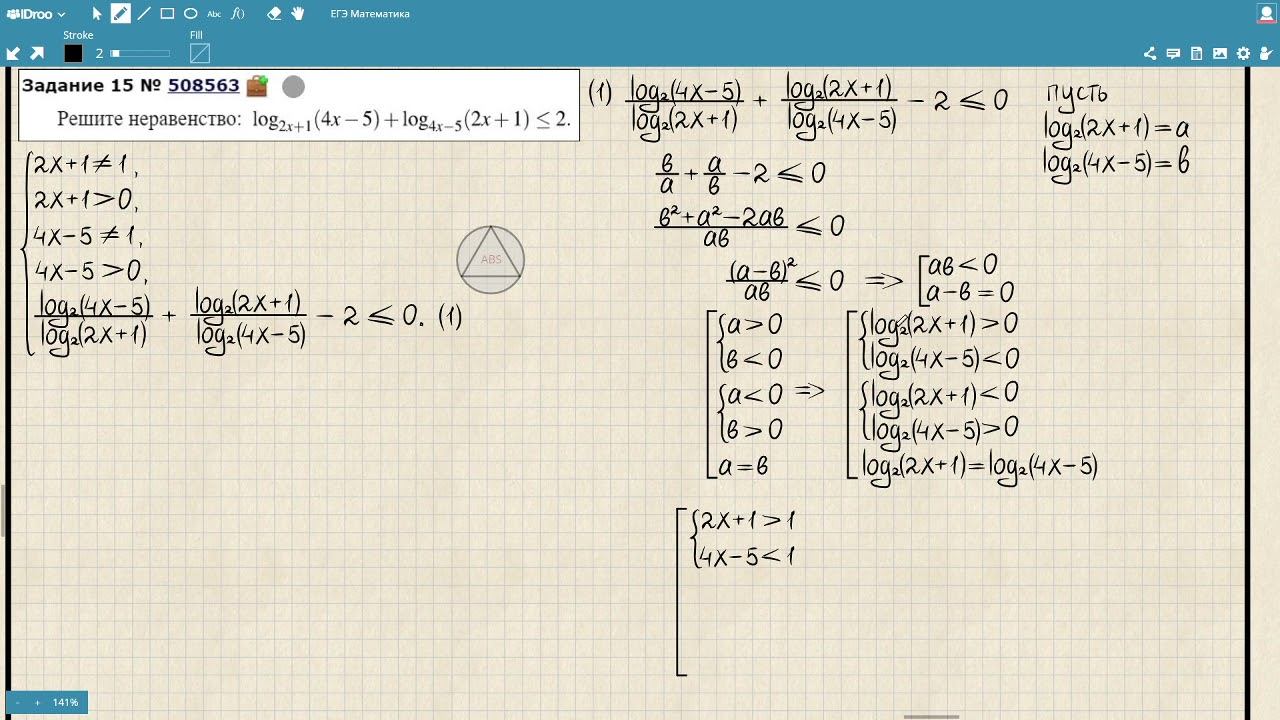 iDroo
Abc
f()
ЕГЭ Математика
Stroke
2
Fill
Задание 15 № 508563
Решите неравенство: log₂ₓ₊₁(4x − 5) + log₄ₓ₋₅(2x + 1) ≤ 2.
2x+1≠1,
2x+1>0,
4x−5≠1,
4x−5>0,
log₂(4x−5)/log₂(2x+1) + log₂(2x+1)/log₂(4x−5) − 2 ≤ 0. (1)
ABS
(1) log₂(4x−5)/log₂(2x+1) + log₂(2x+1)/log₂(4x−5) − 2 ≤ 0
пусть
log₂(2x+1)=a
log₂(4x−5)=в
в/a + a/в − 2 ≤ 0
(в²+a²−2aв)/aв ≤ 0
(a−в)²/aв ≤ 0 => [aв<0
a−в=0
a>0
в<0
a<0 =>
в>0
a=в
log₂(2x+1)>0
log₂(4x−5)<0
log₂(2x+1)<0
log₂(4x−5)>0
log₂(2x+1)=log₂(4x−5)
2x+1>1
4x−5<1
- + 141%